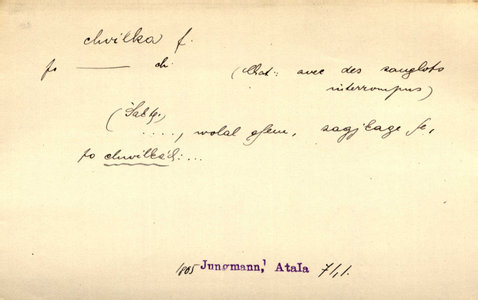 chvilka f.
po —— ch (Chat: avec des sanglots
interrompus)
(Šakt.)
...., wolal gsem, zagjkage se,
po chwilkách: ...
1805 Jungmann,¹ Atala 71,1.